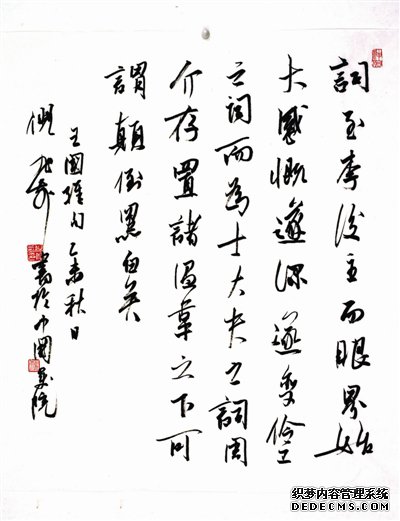 詞至李後主而眼界始
大感慨遂深遂變伶工
之詞而為士大夫之詞周
介存置諸温韋之下可
謂顛倒黑白矣
王國維句乙未秋日
倪 書於中國美院
织梦内容管理系统
DEDECMS.COM